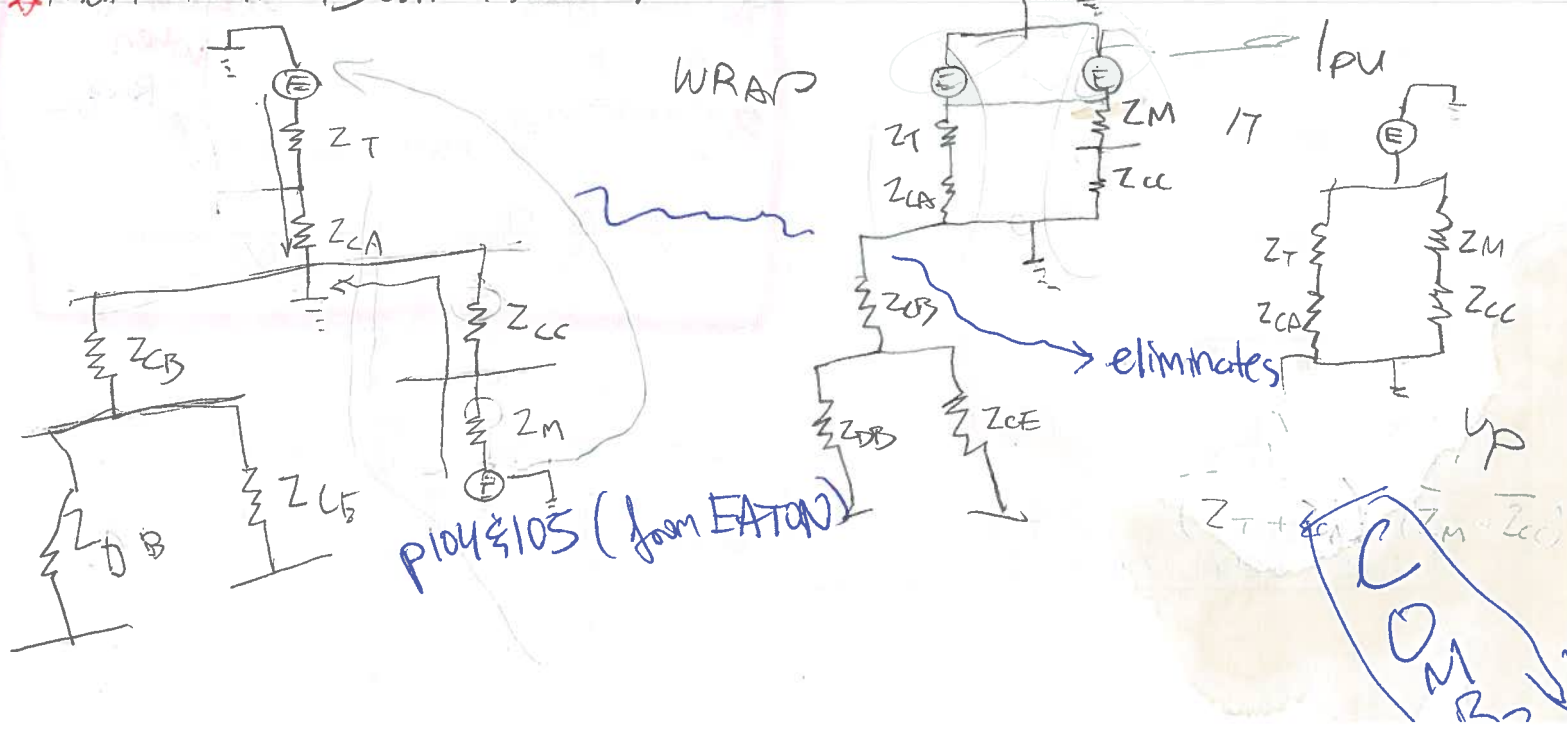 E
Z T
Z CA
Z CB
Z CC
Z M
E
Z DB
Z CE
p104 & 105 (from EATON)
WRAP
E
E
Z T
Z M
Z CA
Z CC
Z CB
Z DB
Z CE
eliminates
1 pu
IT
E
Z T
Z M
Z CA
Z CC
up
Z T +
Z M
Z CC
C
O
M